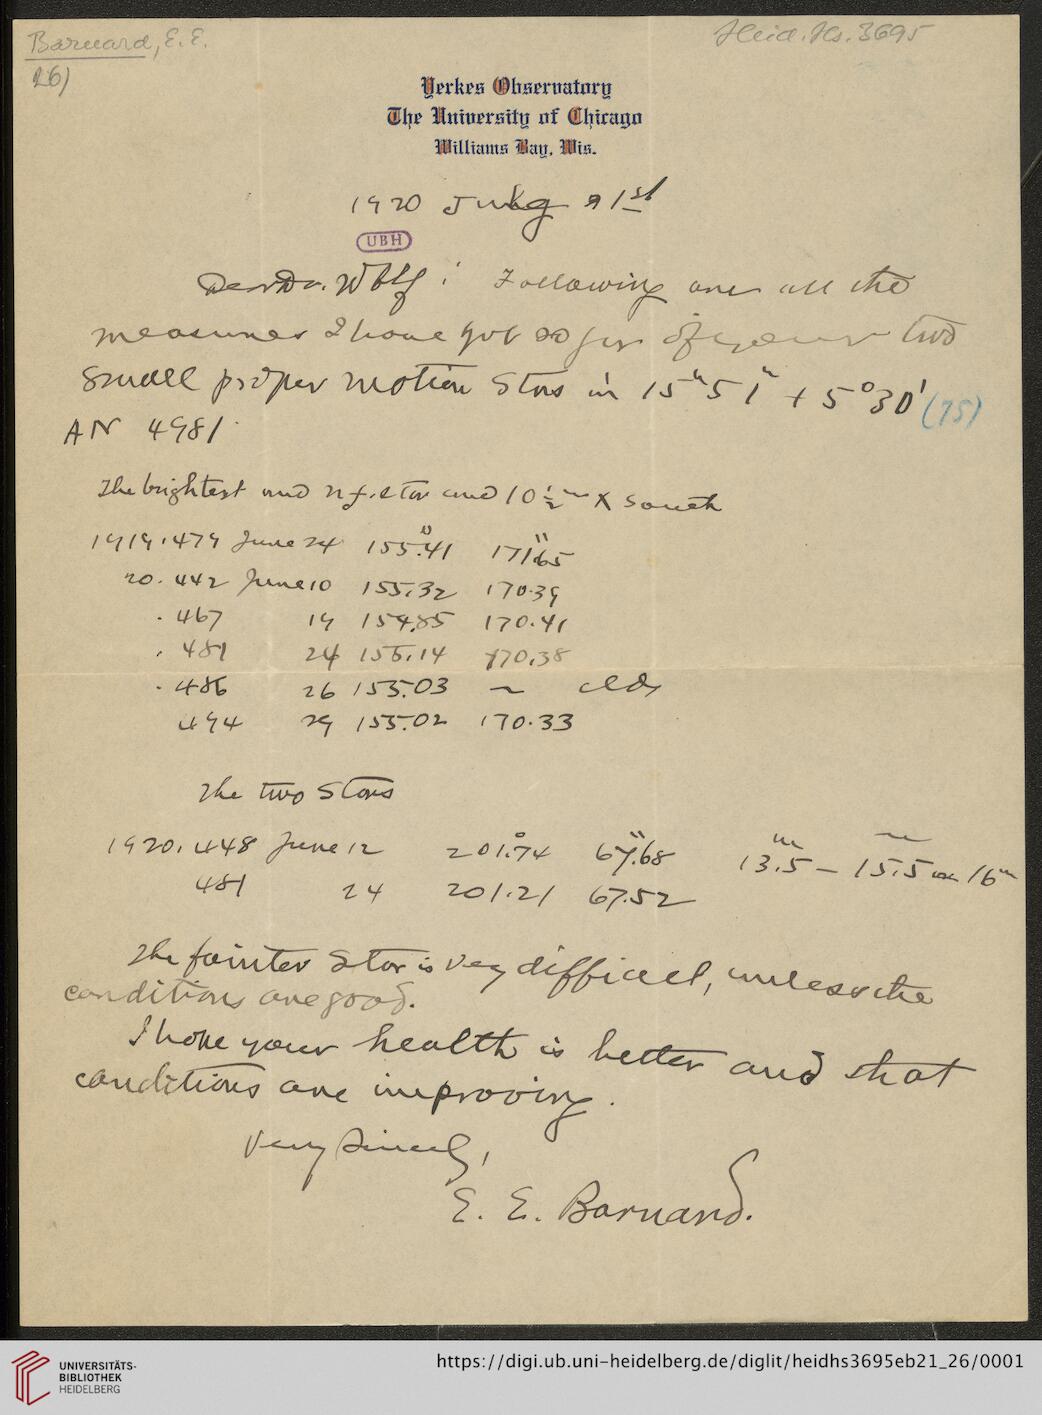 Barnard, E. E.
26)
Heid. Hs. 3695
Yerkes Observatory
The University of Chicago
Williams Bay, Wis.
1920 July 21st
UBH
Dear Dr. Wolf: Following are all the
measures I have got so far of your two
small proper motion stars in 15h 51m + 5° 30' (75)
AN 4981.
The brightest and n f. star and 10½m X south
1919.479 June 24 155°.41 171".65
20.442 June 10 155.32 170.39
.467 19 154.85 170.41
.481 24 155.14 170.38
.486 26 155.03 — clds
494 29 155.02 170.33
The two stars
1920.448 June 12 201°.74 67".68 13.5m – 15.5 or 16m
481 24 201.21 67.52
The fainter star is very difficult, unless the
conditions are good.
I hope your health is better and that
conditions are improving.
Very sincerely,
E. E. Barnard.
UNIVERSITÄTS-
BIBLIOTHEK
HEIDELBERG
https://digi.ub.uni-heidelberg.de/diglit/heidhs3695eb21_26/0001